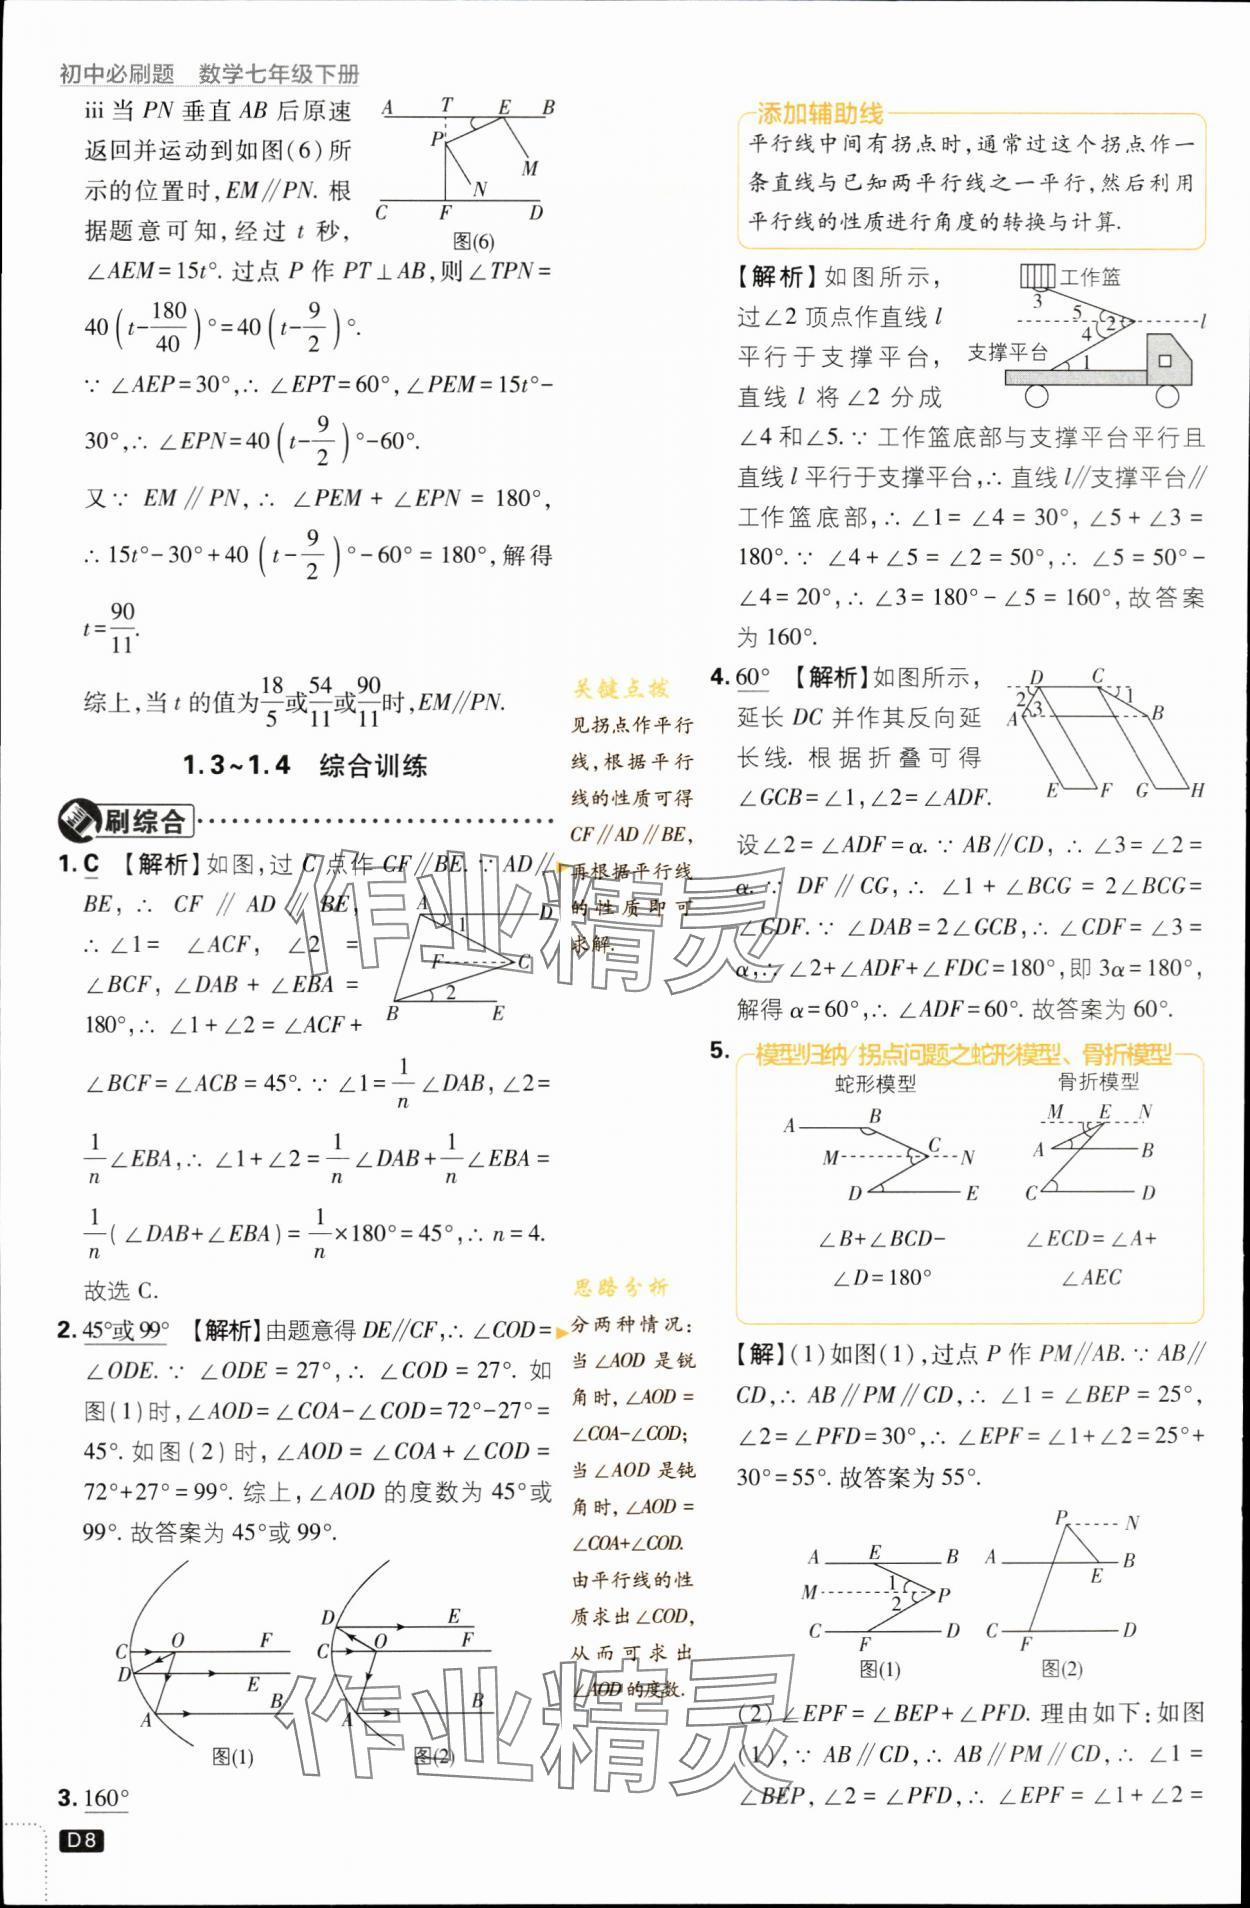 初中必刷题 数学七年级下册
iii 当 PN 垂直 AB 后原速
返回并运动到如图(6)所
示的位置时,EM∥PN. 根
据题意可知,经过 t 秒,
∠AEM=15t°. 过点 P 作 PT⊥AB,则∠TPN=
40(t-180/40)°=40(t-9/2)°.
∵ ∠AEP=30°,∴ ∠EPT=60°,∠PEM=15t°-
30°,∴ ∠EPN=40(t-9/2)°-60°.
又∵ EM∥PN,∴ ∠PEM+∠EPN=180°,
∴ 15t°-30°+40(t-9/2)°-60°=180°,解得
t=90/11.
综上,当 t 的值为18/5或54/11或90/11时,EM∥PN.
A T E B
P
M
N
C F D
图(6)
1.3~1.4 综合训练
刷综合
1. C 【解析】如图,过 C 点作 CF∥BE. ∵ AD∥
BE, ∴ CF∥AD∥BE,
∴ ∠1= ∠ACF, ∠2 =
∠BCF, ∠DAB + ∠EBA =
180°,∴ ∠1+∠2= ∠ACF+
∠BCF=∠ACB=45°. ∵ ∠1=1/n∠DAB,∠2=
1/n∠EBA,∴ ∠1+∠2=1/n∠DAB+1/n∠EBA=
1/n(∠DAB+∠EBA)=1/n×180°=45°,∴ n=4.
故选 C.
A D
1
F C
2
B E
2. 45°或99° 【解析】由题意得 DE∥CF,∴ ∠COD=
∠ODE. ∵ ∠ODE=27°,∴ ∠COD=27°. 如
图(1)时,∠AOD=∠COA-∠COD=72°-27°=
45°. 如图(2)时,∠AOD=∠COA+∠COD=
72°+27°=99°. 综上,∠AOD 的度数为 45°或
99°. 故答案为 45°或 99°.
C O F
D E
B
A
图(1)
D E
C O F
A B
图(2)
3. 160°
D8
关键点拨
见拐点作平行
线,根据平行
线的性质可得
CF∥AD∥BE,
再根据平行线
的性质即可
求解.
思路分析
分两种情况:
当∠AOD 是锐
角时,∠AOD=
∠COA-∠COD;
当∠AOD 是钝
角时,∠AOD=
∠COA+∠COD.
由平行线的性
质求出∠COD,
从而可求出
∠AOD的度数.
添加辅助线
平行线中间有拐点时,通常过这个拐点作一
条直线与已知两平行线之一平行,然后利用
平行线的性质进行角度的转换与计算.
【解析】如图所示,
过∠2 顶点作直线 l
平行于支撑平台,
直线 l 将∠2 分成
∠4 和∠5. ∵ 工作篮底部与支撑平台平行且
直线 l 平行于支撑平台,∴ 直线 l∥支撑平台∥
工作篮底部,∴ ∠1= ∠4=30°, ∠5+∠3=
180°. ∵ ∠4+∠5=∠2=50°,∴ ∠5=50°-
∠4=20°,∴ ∠3=180°-∠5=160°,故答案
为 160°.
工作篮
3
5
4 2
l
支撑平台
1
4. 60° 【解析】如图所示,
延长 DC 并作其反向延
长线. 根据折叠可得
∠GCB=∠1,∠2=∠ADF.
设∠2=∠ADF=α. ∵ AB∥CD, ∴ ∠3=∠2=
α. ∵ DF∥CG,∴ ∠1+∠BCG=2∠BCG=
∠CDF. ∵ ∠DAB=2∠GCB,∴ ∠CDF=∠3=
α,∴ ∠2+∠ADF+∠FDC=180°,即 3α=180°,
解得 α=60°,∴ ∠ADF=60°. 故答案为 60°.
D C
2 1
A 3 B
E F G H
5. 模型归纳/拐点问题之蛇形模型、骨折模型
蛇形模型 骨折模型
A B
C
M N
D E
M E N
A B
C D
∠B+∠BCD- ∠ECD=∠A+
∠D=180° ∠AEC
【解】(1)如图(1),过点 P 作 PM∥AB. ∵ AB∥
CD,∴ AB∥PM∥CD,∴ ∠1=∠BEP=25°,
∠2=∠PFD=30°,∴ ∠EPF=∠1+∠2=25°+
30°=55°. 故答案为 55°.
A E B
1
M P
2
C F D
图(1)
P N
A B
E
C F D
图(2)
(2)∠EPF=∠BEP+∠PFD. 理由如下:如图
(1),∵ AB∥CD,∴ AB∥PM∥CD,∴ ∠1=
∠BEP,∠2=∠PFD,∴ ∠EPF=∠1+∠2=
作业精灵
作业精灵